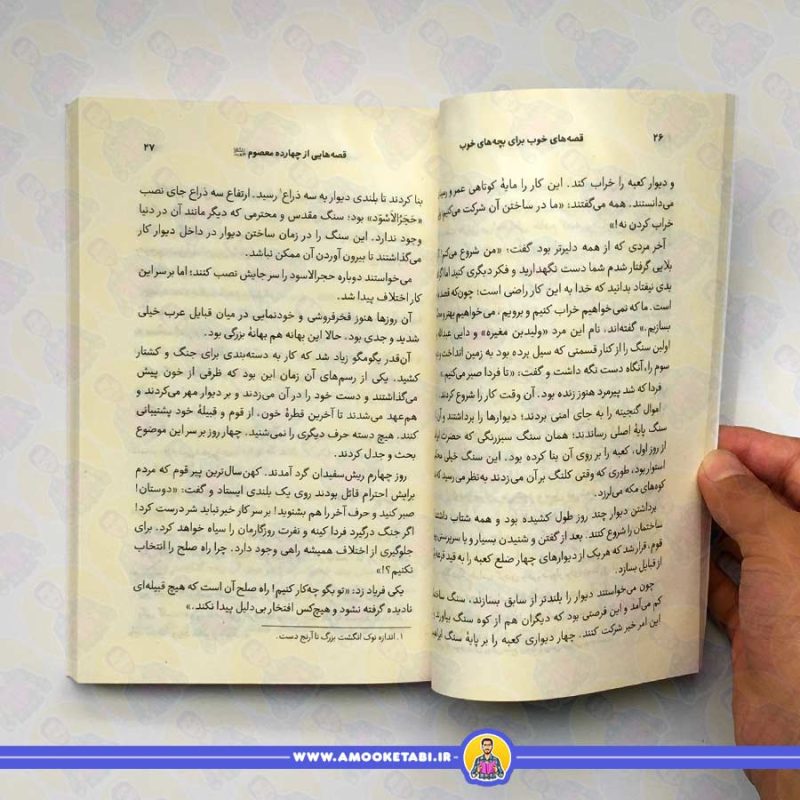 ۲۶
قصه‌های خوب برای بچه‌های خوب
و دیوار کعبه را خراب کند. این کار را مایهٔ کوتاهی عمر و
می‌دانستند. همه می‌گفتند: «ما در ساختن آن شرکت می‌کنیم
خراب کردن نه!»
آخر مردی که از همه دلیرتر بود گفت: «من شروع می‌کنم؛
بلایی گرفتار شدم شما دست نگهدارید و فکر دیگری کنید اما اگر
بدی نیفتاد بدانید که خدا به این کار راضی است؛ چون‌که قصد
است. ما که نمی‌خواهیم خراب کنیم و برویم، می‌خواهیم بهتر و
بسازیم.» گفته‌اند، نام این مرد «ولیدبن مغیره» و دایی
اولین سنگ را از کنار قسمتی که سیل برده بود به زمین انداخت
سوم را، آنگاه دست نگه داشت و گفت: «تا فردا صبر می‌کنیم.»
فردا که شد پیرمرد هنوز زنده بود. آن وقت کار را شروع کردند.
اموال گنجینه را به جای امنی بردند؛ دیوارها را برداشتند و
سنگ پایهٔ اصلی رساندند؛ همان سنگ سبزرنگی که حضرت
از روز اول، کعبه را بر روی آن بنا کرده بود. این سنگ خیلی
استوار بود، طوری که وقتی کلنگ بر آن می‌زدند به‌نظر می‌رسید که
کوه‌های مکه می‌لرزد.
برداشتن دیوار چند روز طول کشیده بود و همه شتاب داشتند
ساختمان را شروع کنند. بعد از گفتن و شنیدن بسیار و با سرپرستی
قوم، قرار شد که هریک از دیوارهای چهار ضلع کعبه را به قید
از قبایل بسازد.
چون می‌خواستند دیوار را بلندتر از سابق بسازند، سنگ
کم می‌آمد و این فرصتی بود که دیگران هم از کوه سنگ بیاورند
این امر خیر شرکت کنند. چهار دیواری کعبه را بر پایهٔ سنگ
قصه‌هایی از چهارده معصوم
۲۷
بنا کردند تا بلندی دیوار به سه ذراع۱ رسید. ارتفاع سه ذراع جای نصب
«حَجَرُالاَسْوَد» بود؛ سنگ مقدس و محترمی که دیگر مانند آن در دنیا
وجود ندارد. این سنگ را در زمان ساختن دیوار در داخل دیوار کار
می‌گذاشتند تا بیرون آوردن آن ممکن نباشد.
می‌خواستند دوباره حجرالاسود را سر جایش نصب کنند؛ اما بر سر این
کار اختلاف پیدا شد.
آن روزها هنوز فخرفروشی و خودنمایی در میان قبایل عرب خیلی
شدید و جدی بود. حالا این بهانه هم بهانهٔ بزرگی بود.
آن‌قدر بگومگو زیاد شد که کار به دسته‌بندی برای جنگ و کشتار
کشید. یکی از رسم‌های آن زمان این بود که ظرفی از خون پیش
می‌گذاشتند و دست خود را در آن می‌زدند و بر دیوار مهر می‌کردند و
هم‌عهد می‌شدند تا آخرین قطرهٔ خون، از قوم و قبیلهٔ خود پشتیبانی
کنند. هیچ دسته حرف دیگری را نمی‌شنید. چهار روز بر سر این موضوع
بحث و جدل کردند.
روز چهارم ریش‌سفیدان گرد آمدند. کهن‌سال‌ترین پیر قوم که مردم
برایش احترام قائل بودند روی یک بلندی ایستاد و گفت: «دوستان!
صبر کنید و حرف آخر را هم بشنوید! بر سر کار خیر نباید شر درست کرد!
اگر جنگ درگیرد فردا کینه و نفرت روزگارمان را سیاه خواهد کرد. برای
جلوگیری از اختلاف همیشه راهی وجود دارد. چرا راه صلح را انتخاب
نکنیم؟!»
یکی فریاد زد: «تو بگو چه‌کار کنیم! راه صلح آن است که هیچ قبیله‌ای
نادیده گرفته نشود و هیچ‌کس افتخار بی‌دلیل پیدا نکند.»
۱. اندازه نوک انگشت بزرگ تا آرنج دست.
WWW.AMOOKETABI.IR